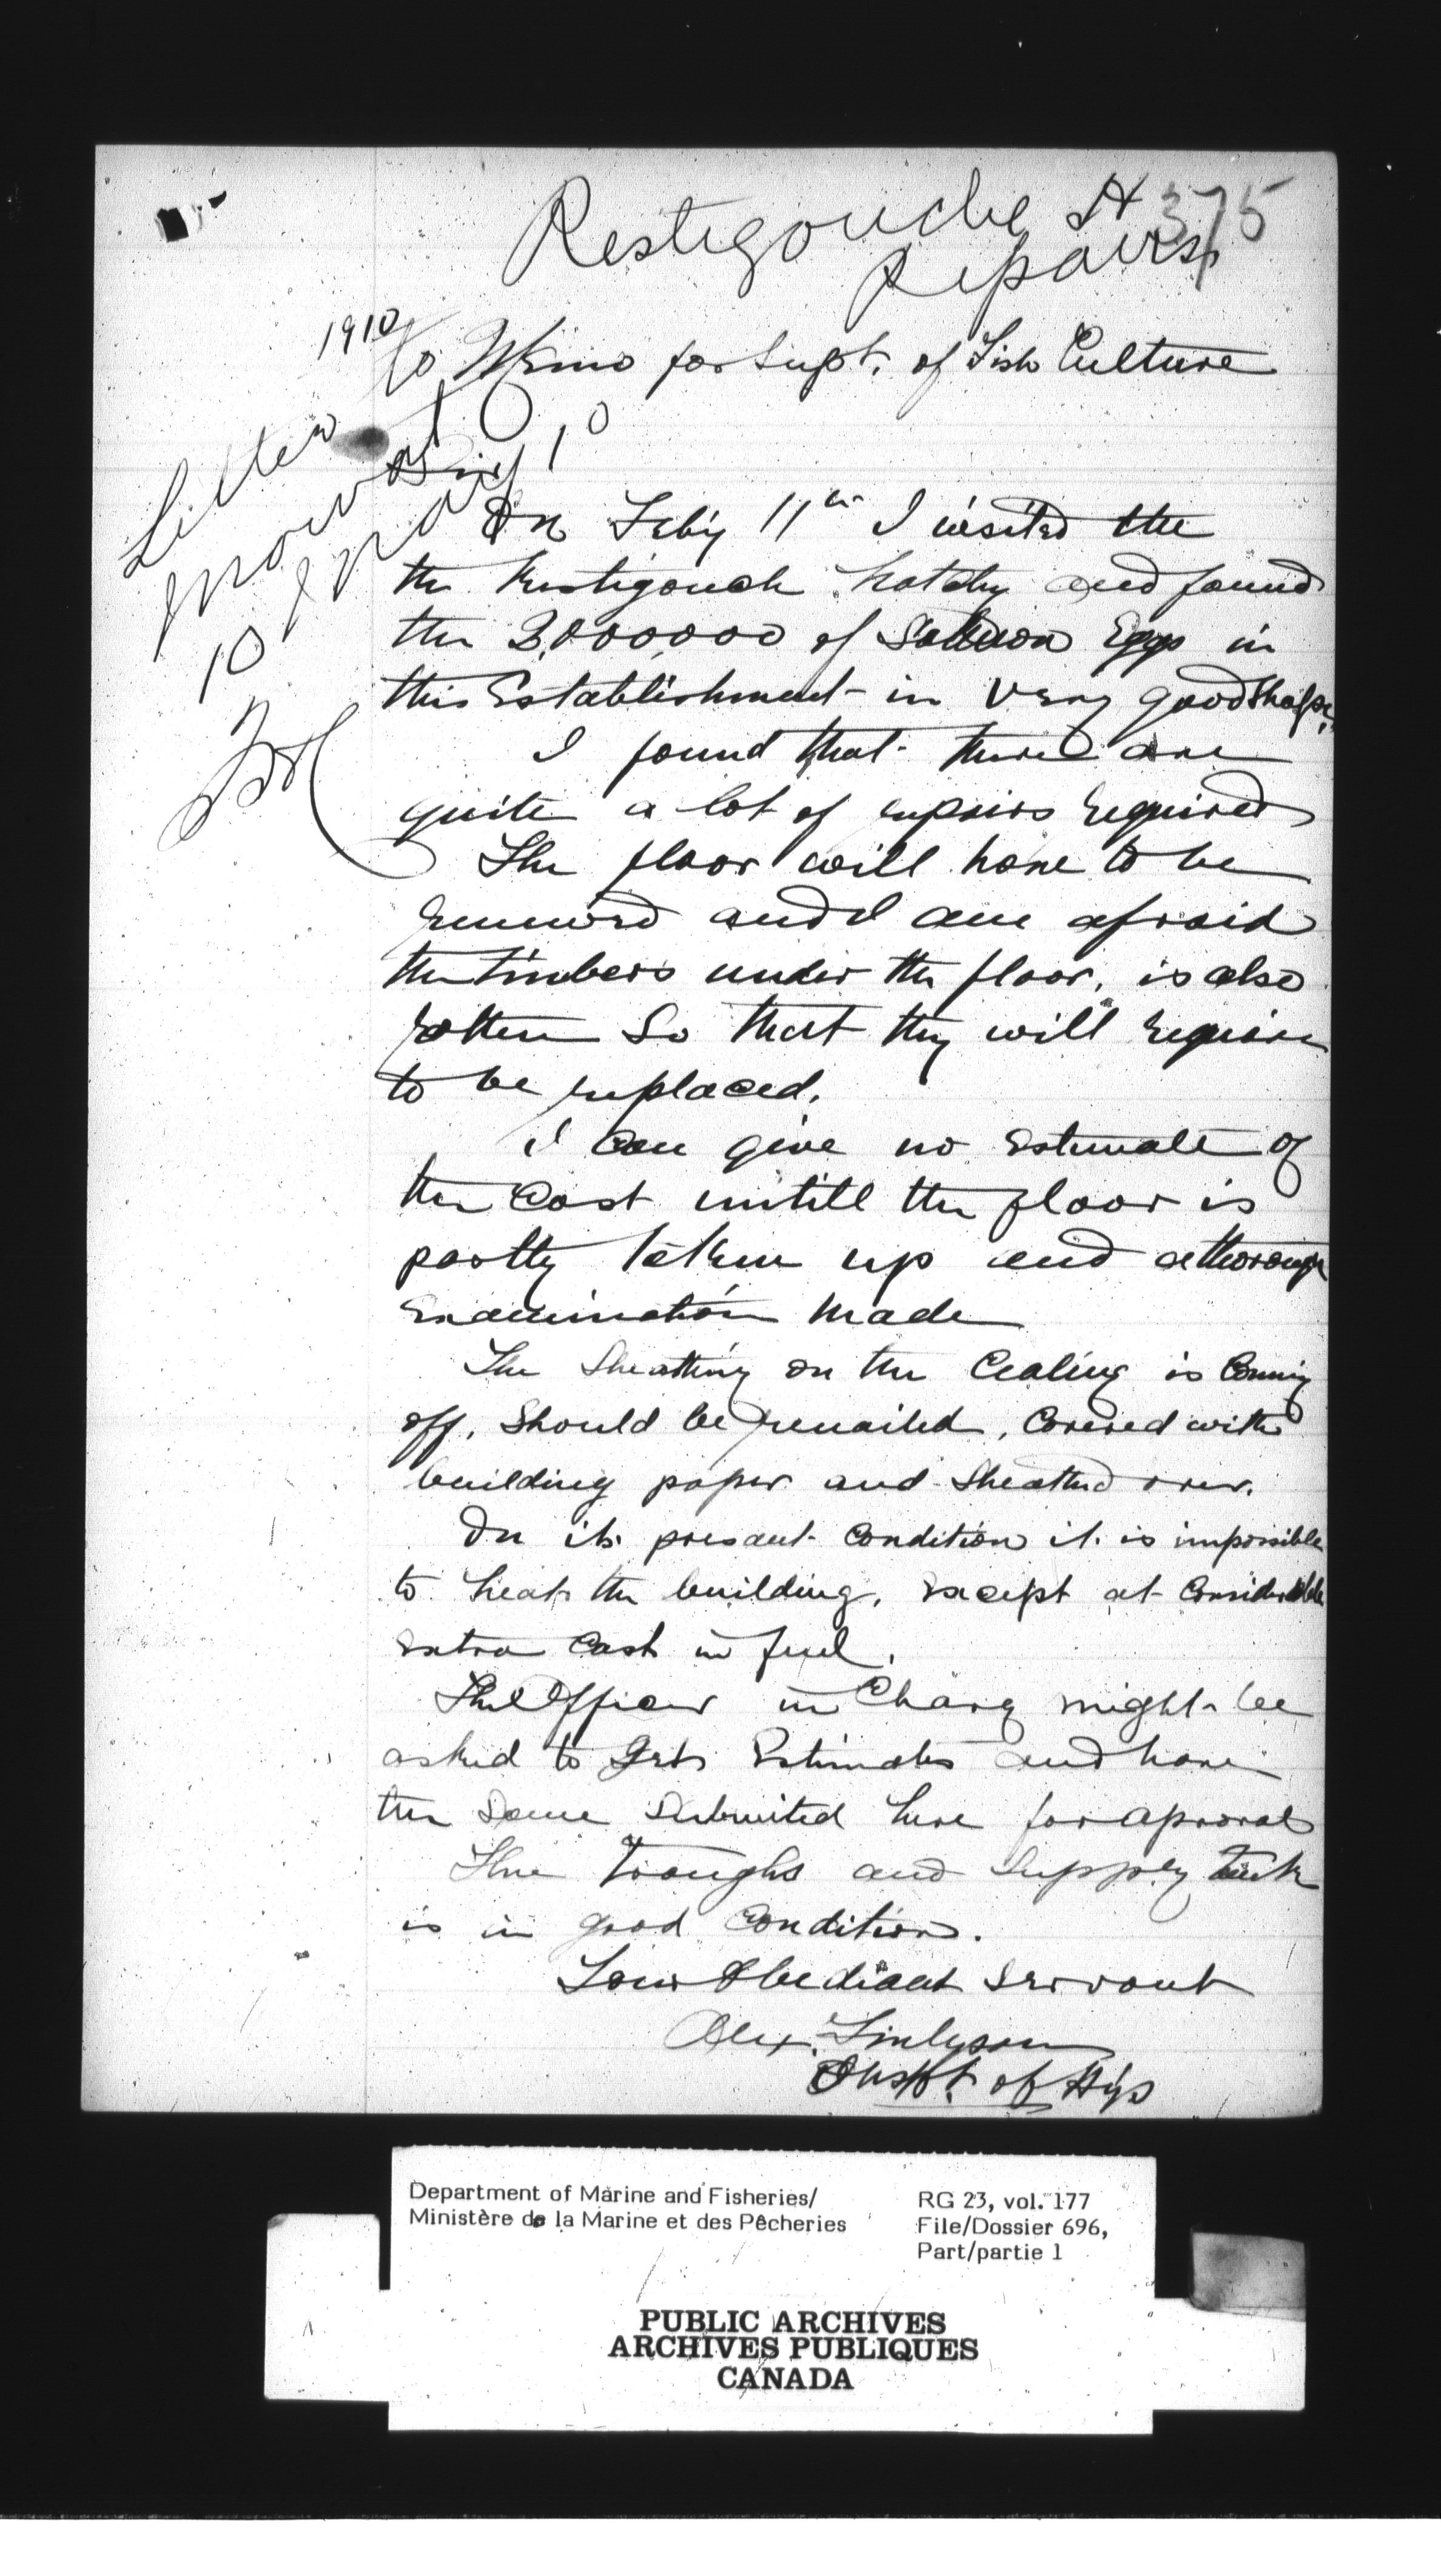 375
Restigouche H
Repairs
1910
to Memo for Supt. of Fish Culture
Letter
Mowat
10 May 10
Sir
On Feb'y 11th I visited the
the Restigouch hatchy and found
the 3,000,000 of Salmon Eggs in
this Establishment in Very good Shape.
I found that there are
quite a lot of repairs required
The floor will have to be
renewed and I am afraid
the timbers under the floor, is also
rotten So that they will require
to be replaced.
I Can give no Estimate of
the Cost untill the floor is
partly taken up and a thorough
Examination Made
The Sheathing on the Cealing is Coming
off, Should be renailed, Covered with
building paper and Sheathed over.
In its presant Condition it is impossible
to heat the building, Except at Considerable
Extra Cost in fuel.
The Officer in Charg might be
asked to Get Estimates and have
the Same Submited here for aproval
The Troughs and Supply tank
is in good Condition.
Your Obediant Servant
Alex. Finlyson
Inspt. of Hys
Department of Marine and Fisheries/
Ministère de la Marine et des Pêcheries
RG 23, vol. 177
File/Dossier 696,
Part/partie 1
PUBLIC ARCHIVES
ARCHIVES PUBLIQUES
CANADA